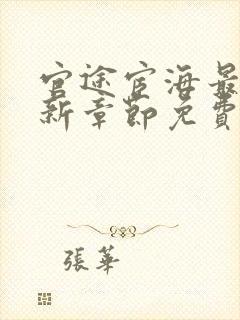 官途宦海最
新章節免費
張華